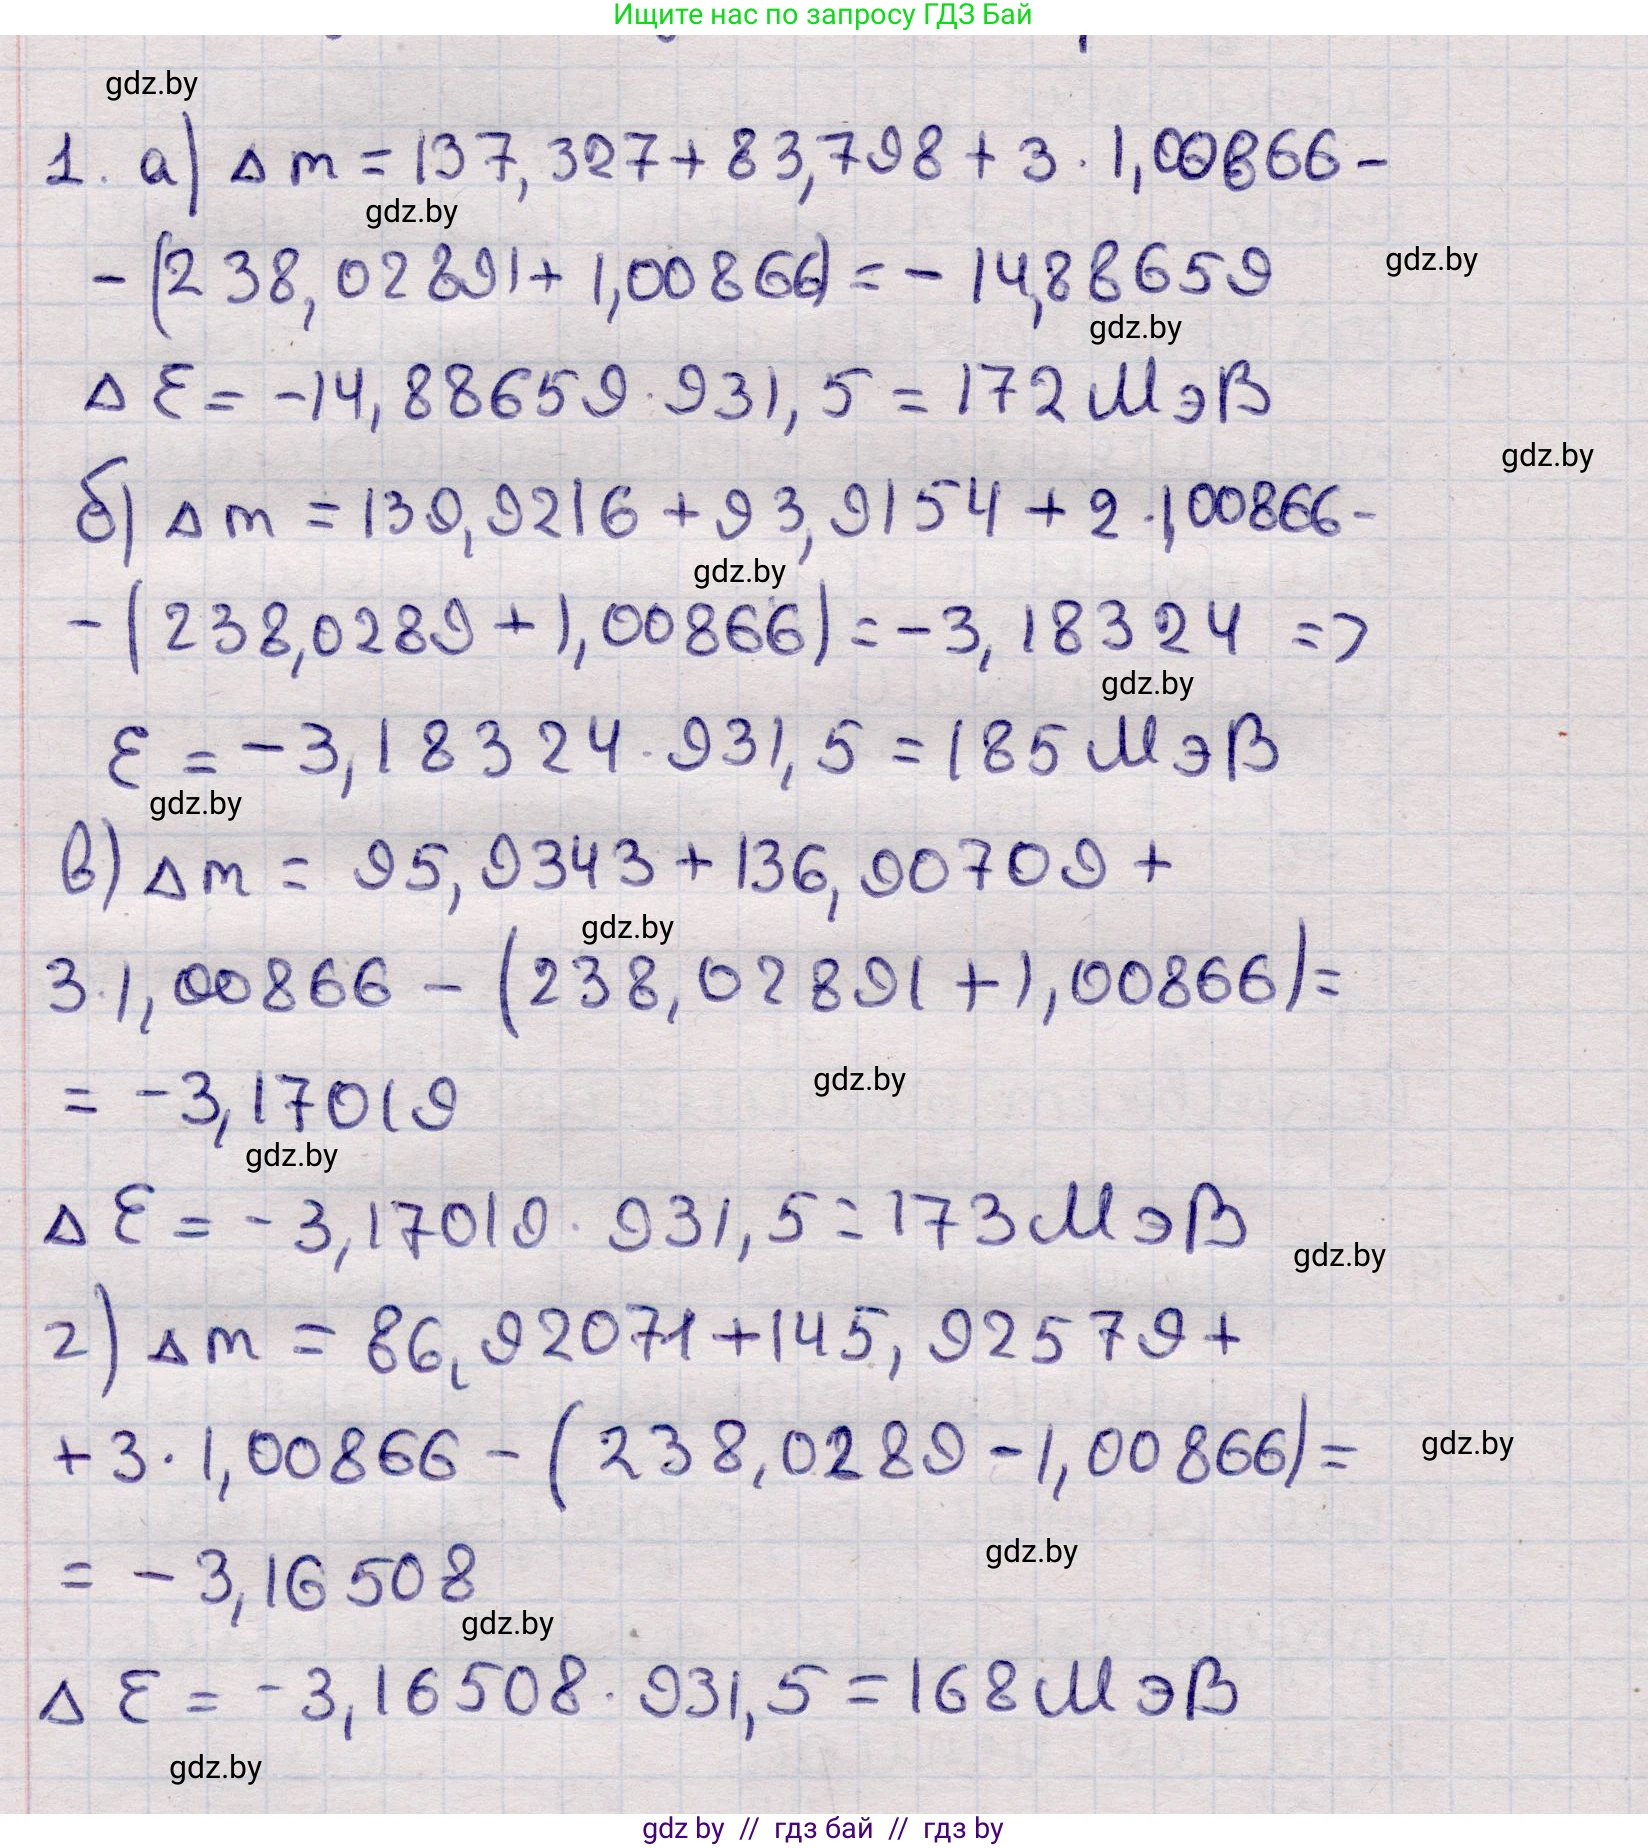 Ищите нас по запросу ГДЗ Бай
gdz.by
1. а) Δm = 137,327 + 83,798 + 3 · 1,00866 -
gdz.by
- (238,02891 + 1,00866) = - 14,88659
gdz.by
gdz.by
Δ Ɛ = -14,88659 · 931,5 = 172 МэВ
gdz.by
б) Δm = 139,9216 + 93,9154 + 2 · 1,00866 -
gdz.by
- (238,0289 + 1,00866) = -3,18324 =>
gdz.by
Ɛ = -3,18324 · 931,5 = 185 МэВ
gdz.by
в) Δm = 95,9343 + 136,90709 +
gdz.by
3 · 1,00866 - (238,02891 + 1,00866) =
= -3,17019
gdz.by
gdz.by
Δ Ɛ = -3,17019 · 931,5 = 173 МэВ
gdz.by
г) Δm = 86,92071 + 145,92579 +
+ 3 · 1,00866 - (238,0289 - 1,00866) =
gdz.by
= -3,16508
gdz.by
gdz.by
Δ Ɛ = -3,16508 · 931,5 = 168 МэВ
gdz.by
gdz by // гдз бай // гдз by